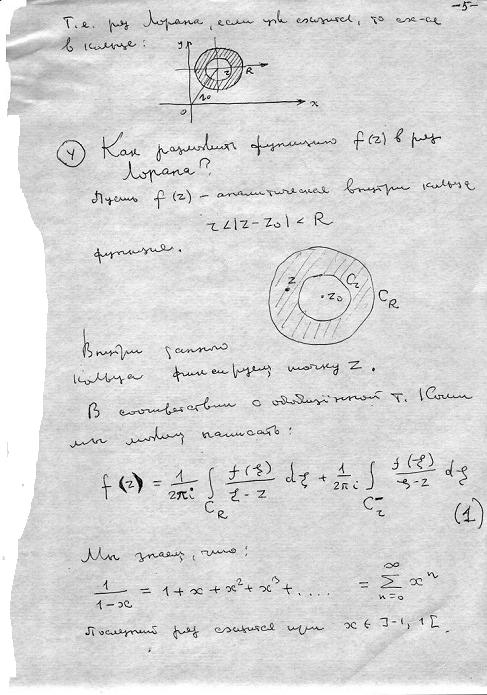 -5-
Т.е. ряд Лорана, если уж сходится, то сх-ся
в кольце:
y
r
R
z₀
0
x
4 Как разложить функцию f(z) в ряд
Лорана?
Пусть f(z) – аналитическая внутри кольца
r<|z-z₀|< R
функция.
z
z₀
C_r
C_R
Внутри данного
кольца фиксируем точку z.
В соответствии с обобщённой т. Коши
мы можем написать:
f(z) = 1/2πi ∫_{C_R} f(ξ)/(ξ-z) dξ + 1/2πi ∫_{C_r^-} f(ξ)/(ξ-z) dξ
(1)
Мы знаем, что:
1/(1-x) = 1 + x + x² + x³ + .... = ∑_{n=0}^{∞} xⁿ
Последний ряд сходится при x ∈ ]-1, 1[.